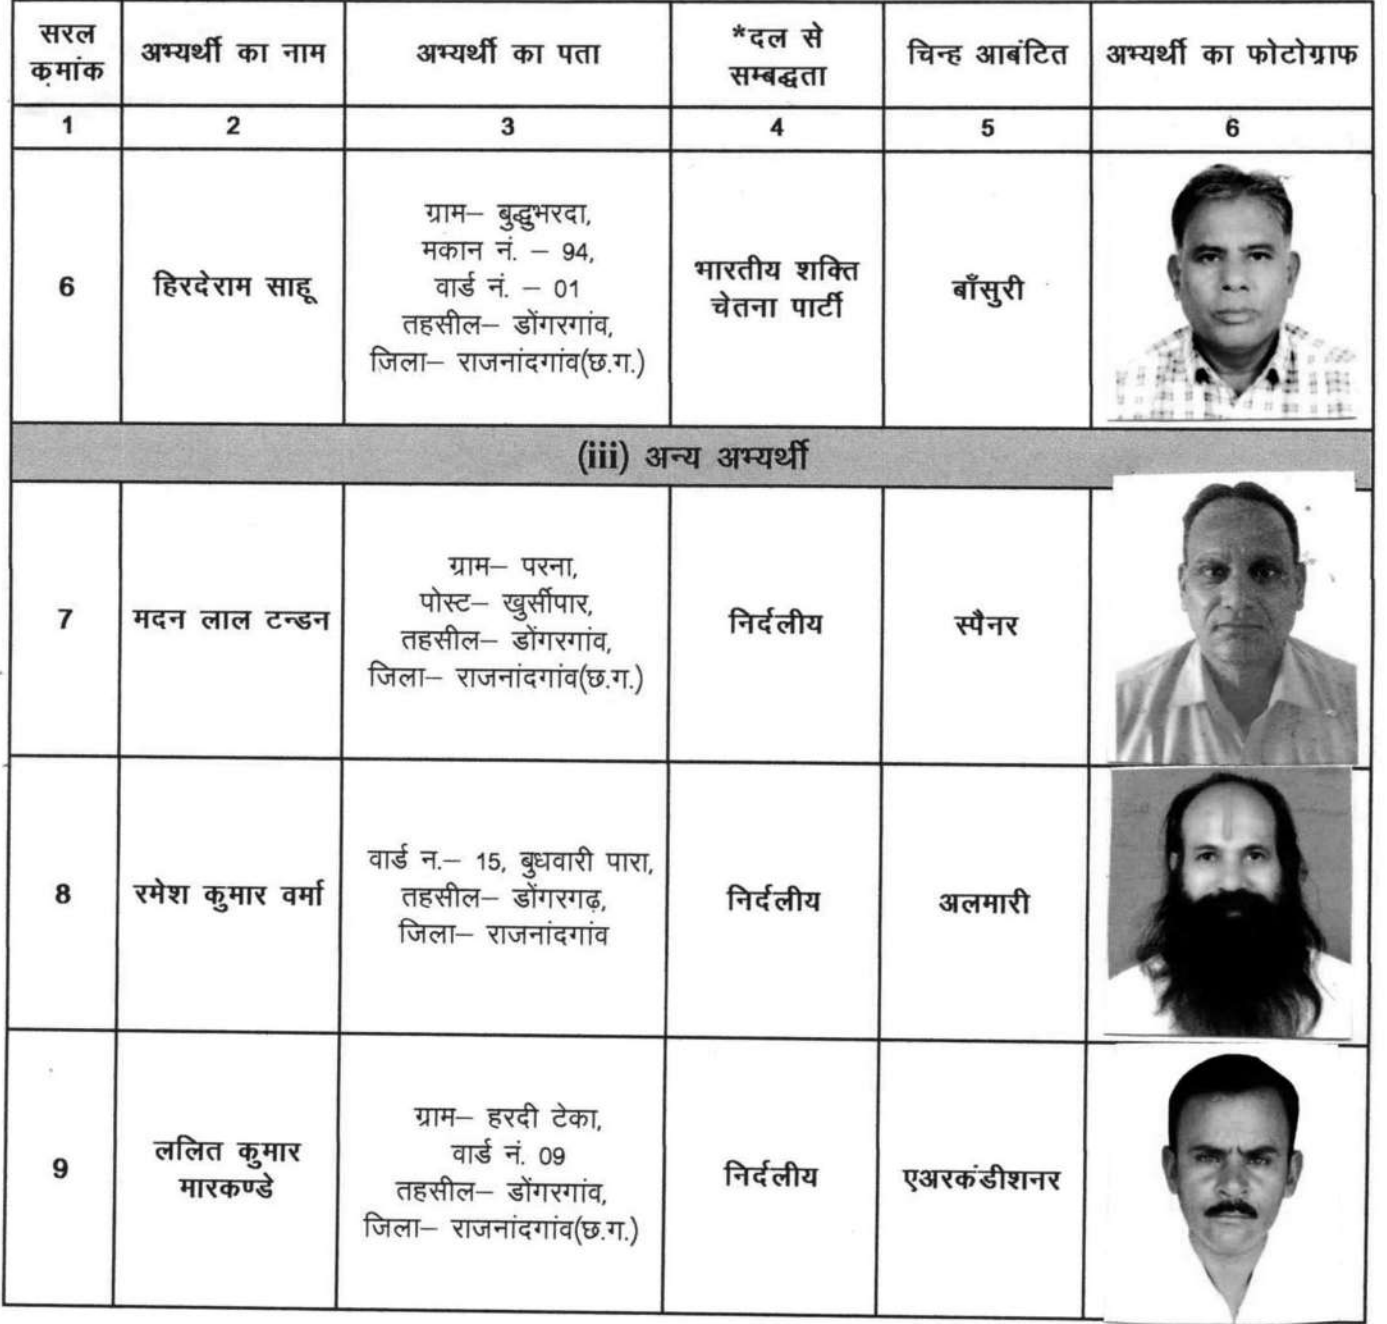 सरल
क्रमांक
अभ्यर्थी का नाम
अभ्यर्थी का पता
*दल से
सम्बद्धता
चिन्ह आबंटित
अभ्यर्थी का फोटोग्राफ
1
2
3
4
5
6
6
हिरदेराम साहू
ग्राम– बुद्धुभरदा,
मकान नं. – 94,
वार्ड नं. – 01
तहसील– डोंगरगांव,
जिला– राजनांदगांव(छ.ग.)
भारतीय शक्ति
चेतना पार्टी
बाँसुरी
(iii) अन्य अभ्यर्थी
7
मदन लाल टन्डन
ग्राम– परना,
पोस्ट– खुर्सीपार,
तहसील– डोंगरगांव,
जिला– राजनांदगांव(छ.ग.)
निर्दलीय
स्पैनर
8
रमेश कुमार वर्मा
वार्ड न.– 15, बुधवारी पारा,
तहसील– डोंगरगढ़,
जिला– राजनांदगांव
निर्दलीय
अलमारी
9
ललित कुमार
मारकण्डे
ग्राम– हरदी टेका,
वार्ड नं. 09
तहसील– डोंगरगांव,
जिला– राजनांदगांव(छ.ग.)
निर्दलीय
एअरकंडीशनर